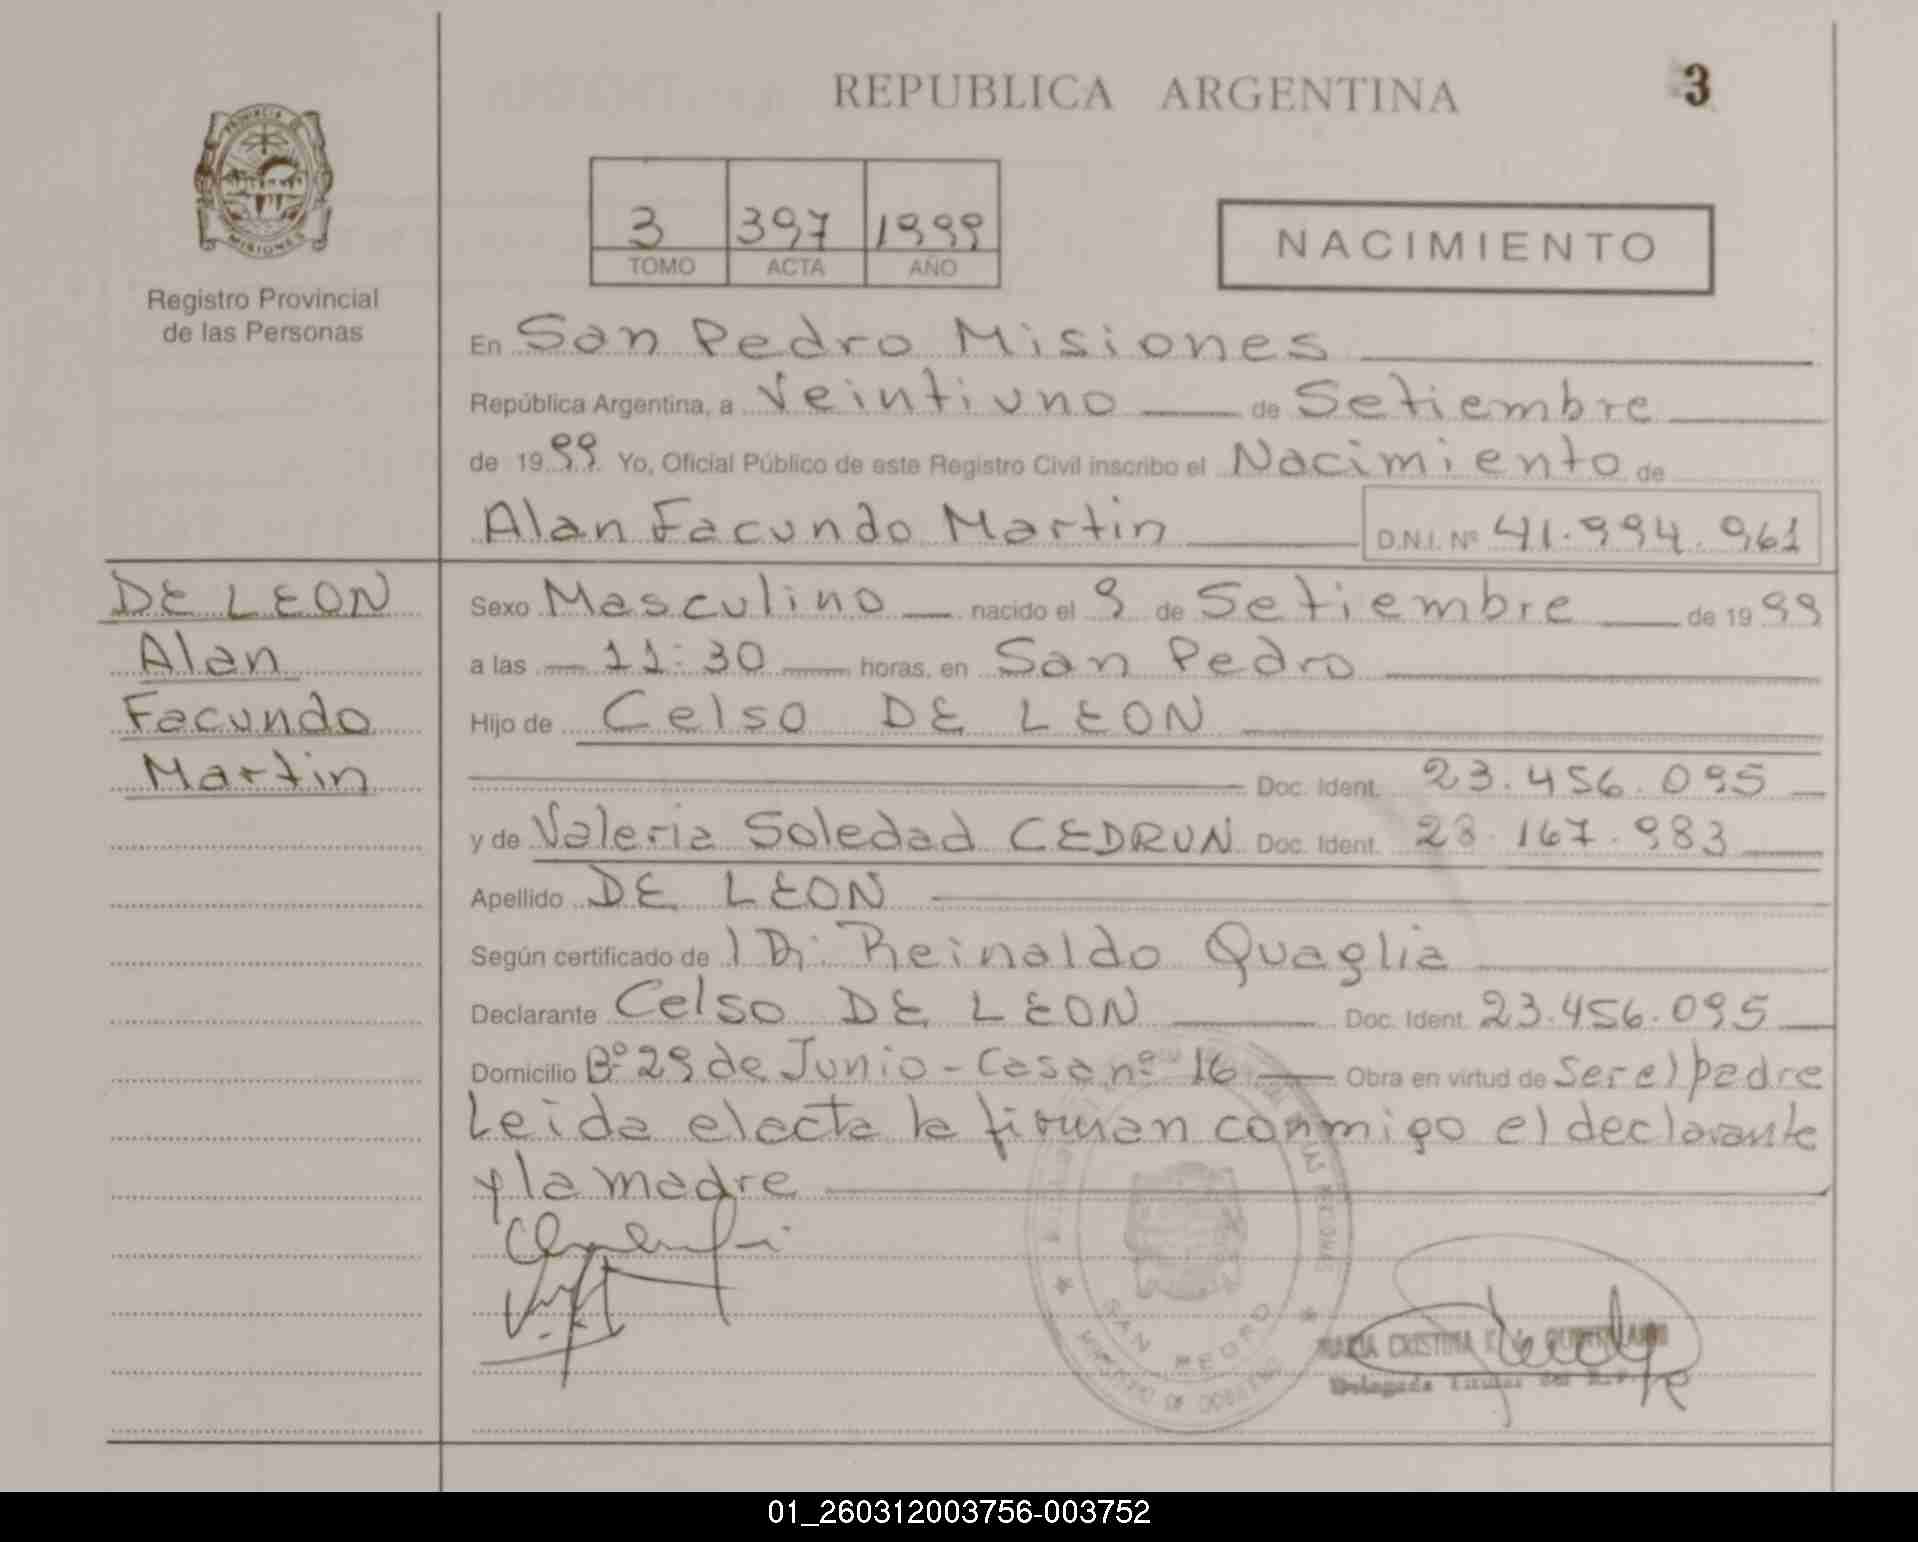 REPUBLICA ARGENTINA
3
PROVINCIA DE
MISIONES
Registro Provincial
de las Personas
3 397 1999
TOMO ACTA AÑO
NACIMIENTO
En San Pedro Misiones
República Argentina, a Veintiuno de Setiembre
de 1999 Yo, Oficial Público de este Registro Civil inscribo el Nacimiento de
Alan Facundo Martin D.N.I. Nº 41.994.961
DE LEON
Alan
Facundo
Martin
Sexo Masculino nacido el 9 de Setiembre de 1999
a las 11:30 horas, en San Pedro
Hijo de Celso DE LEON
Doc. Ident. 23.456.095
y de Valeria Soledad CEDRUN Doc. Ident. 28.167.983
Apellido DE LEON
Según certificado de Reinaldo Quaglia
Declarante Celso DE LEON Doc. Ident. 23.456.095
Domicilio Bº 29 de Junio - Casa nº 16 Obra en virtud de Ser el padre
Leida el acta la firman conmigo el declarante
y la madre
SAN PEDRO
MARIA CRISTINA
Delegada Titular del R.P.
01_260312003756-003752